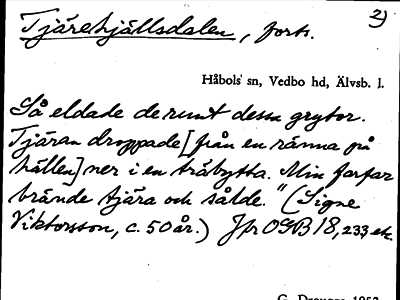 Tjärehjällsdalen, forts.
2)
Håbols' sn, Vedbo hd, Älvsb. l.
Så eldade de runt dessa grytor.
Tjäran droppade [från en ränna på
hällen] ner i en träbytta. Min farfar
brände tjära och sålde." (Signe
Viktorsson, c. 50 år.) Jfr OGB 18, 233 etc.